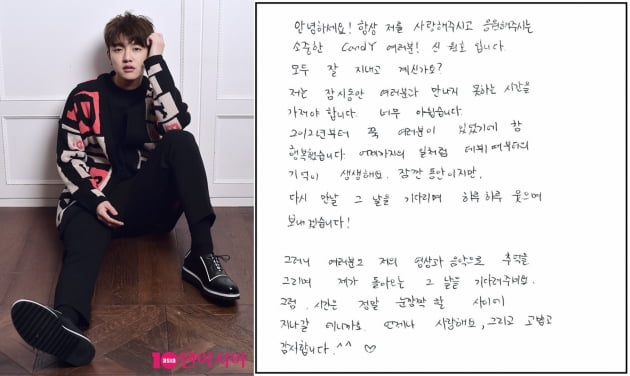 안녕하세요! 항상 저를 사랑해주시고 응원해주시는
소중한 CandY 여러분! 신원호 입니다.
모두 잘 지내고 계신가요?
저는 잠시동안 여러분과 만나지 못하는 시간을
가져야 합니다. 너무 아쉽습니다.
2012년부터 쭉 여러분이 있었기에 참
행복했습니다. 어제까지의 일처럼 데뷔 때부터의
기억이 생생해요. 잠깐 동안이지만,
다시 만날 그 날을 기다리며 하루하루 웃으며
보내겠습니다!
그러니 여러분도 저의 영상과 음악으로 추억을
그리며 제가 돌아오는 그 날을 기다려주세요.
그럼, 시간은 정말 눈깜짝 할 사이에
지나갈 테니까요. 언제나 사랑해요, 그리고 고맙고
감사합니다.^^ ♡
10 ASIA 텐아시아